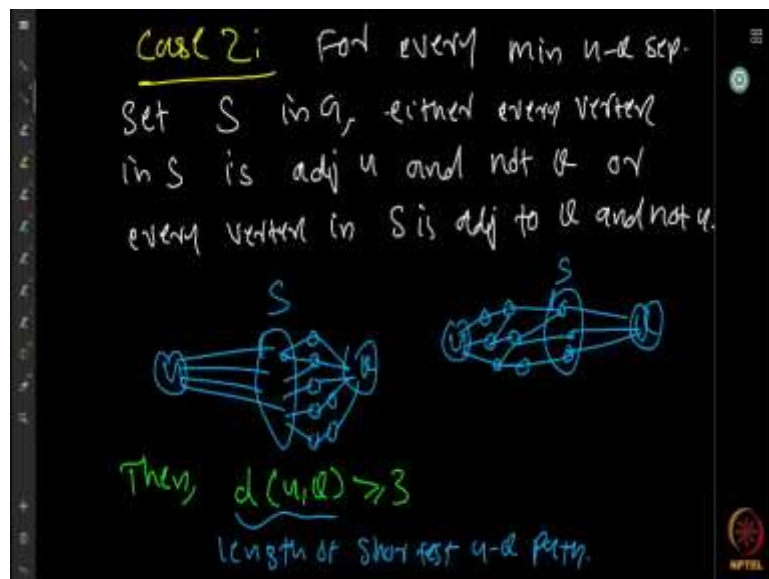 Case 2: For every min u-v sep.
set S in G, either every vertex
in S is adj u and not v or
every vertex in S is adj to v and not u.
S
S
u
v
u
v
Then, d(u,v) ≥ 3
length of shortest u-v path.
NPTEL